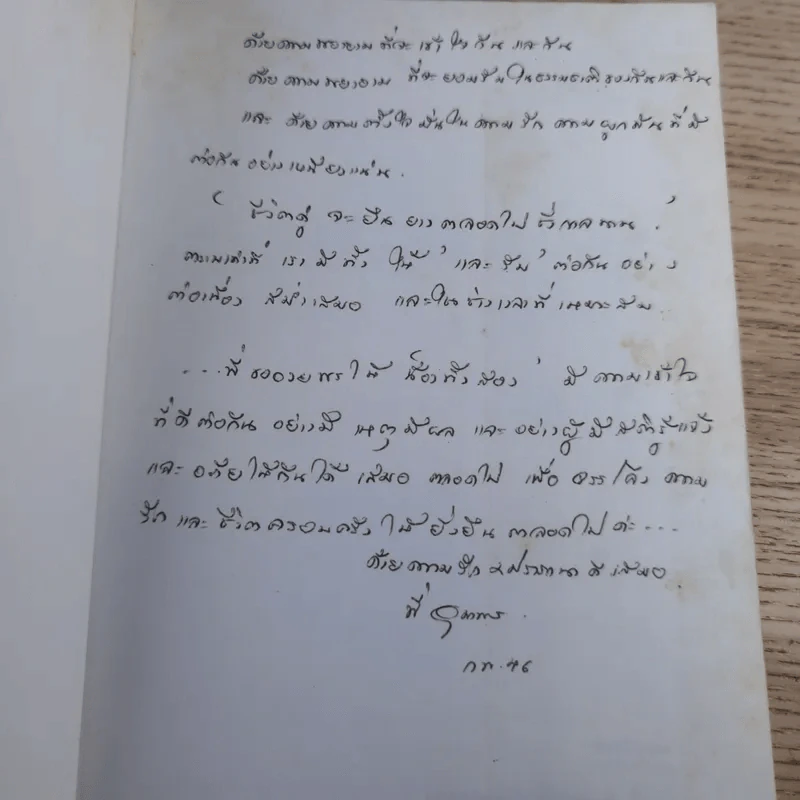 ด้วยความพยายามที่จะเข้าใจกันและกัน
ด้วยความพยายามที่จะยอมรับในธรรมชาติของกันและกัน
และด้วยความตั้งใจมั่นในความรักความผูกพันที่มี
ต่อกันอย่างเหนียวแน่น.
' ชีวิตคู่จะยืนยาวตลอดไปชั่วกาลนาน '
ตราบเท่าที่เรามีทั้ง ให้' และ รับ' ต่อกันอย่าง
ต่อเนื่อง สม่ำเสมอ และในช่วงเวลาที่เหมาะสม
...พี่ขออวยพรให้ น้องทั้งสอง' มีความเข้าใจ
ที่ดีต่อกันอย่างมีเหตุมีผล และอย่างผู้มีสติรู้แจ้ง
และอภัยให้กันได้เสมอตลอดไป เพื่อจรรโลงความ
รักและชีวิตครอบครัวให้ยั่งยืนตลอดไปค่ะ...
ด้วยความรัก ปรารถนาดีเสมอ
พี่
กพ. 46